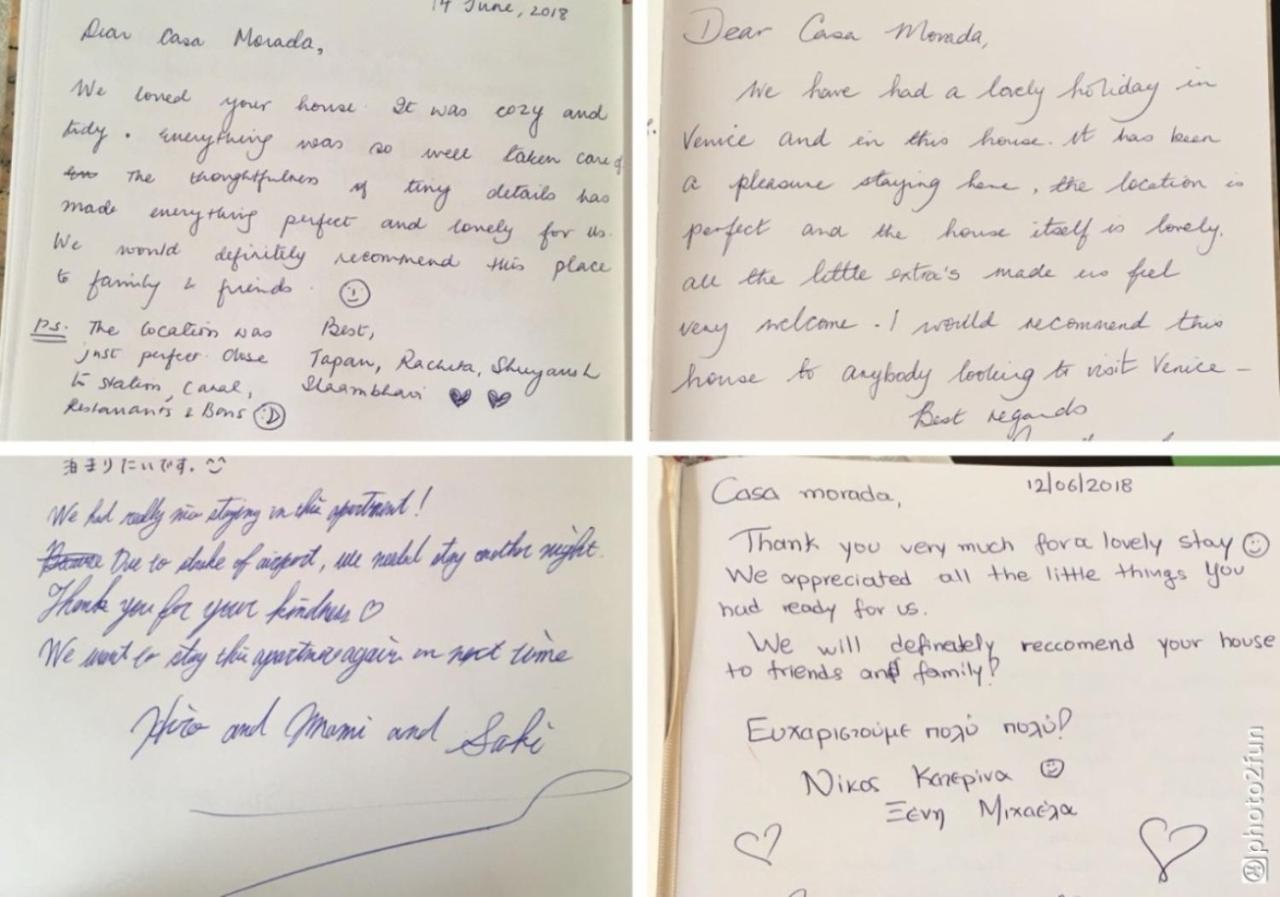 14 June, 2018
Dear Casa Morada,
We loved your house. It was cozy and
tidy. Everything was so well taken care of
The thoughtfulness of tiny details has
made everything perfect and lovely for us.
We would definitely recommend this place
to family & friends.
P.S. The location was
just perfect. Close
to station, Canal,
Restaurants & Bars
Best,
Tapan, Rachita, Shreyansh
Shaambhavi
Dear Casa Morada,
We have had a lovely holiday in
Venice and in this house. It has been
a pleasure staying here, the location is
perfect and the house itself is lovely.
all the little extra's made us feel
very welcome. I would recommend this
house to anybody looking to visit Venice –
Best regards
泊まりたいです。
We had really nice staying in this apartment!
Due to strike of airport, we needed stay another night.
Thank you for your kindness ♡
We want to stay this apartment again in next time
Hiro and Mami and Saki
12/06/2018
Casa morada,
Thank you very much for a lovely stay ☺
We appreciated all the little things you
had ready for us.
We will definately reccomend your house
to friends and family!
Ευχαριστούμε πολύ πολύ!
Νίκος Κατερίνα ☺
Ξένη Μιχαέλα
photo2fun